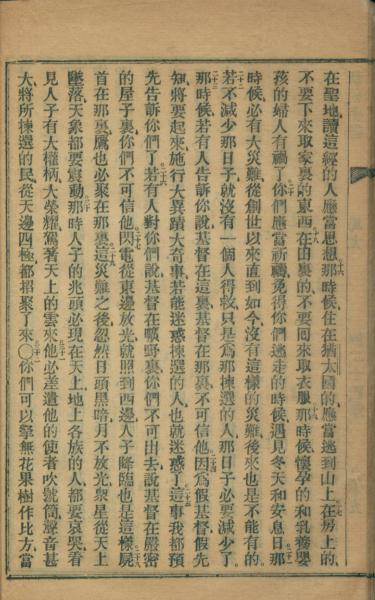 在聖地、讀這經的人應當思想、那時候、住在猶太國的、應當逃到山上、在房上的、
不要下來取家裏的東西、在田裏的、不要回來取衣服、那時候、懷孕的和乳養嬰
孩的婦人有禍了、你們應當祈禱、免得你們逃走的時候、遇見冬天和安息日、那
時候、必有大災難、從創世以來直到如今、沒有這樣的災難、後來也是不能有的、
若不減少那日子、就沒有一個人得救、只是爲那揀選的人、那日子必要減少了、
那時候、若有人告訴你說、基督在這裏、基督在那裏、不可信他、因爲假基督假先
知將要起來、施行大異蹟大奇事、若能迷惑揀選的人、也就迷惑了、這事我都預
先告訴你們了、若有人對你們說、基督在曠野裏、你們不可出去、說基督在嚴密
的屋子裏、你們不可信他、閃電從東邊放光、就照到西邊、人子降臨也是這樣、屍
首在那裏、鷹也必聚在那裏、這災難之後、忽然日頭黑暗、月不放光、衆星從天上
墜落、天象都要震動、那時人子的兆頭必現在天上、地上各族的人都要哀哭、看
見人子有大權柄、大榮耀、駕著天上的雲來、他必差遣他的使者、吹號筒聲音甚
大、將所揀選的民、從天邊四極都招聚了來、〇你們可以拏無花果樹作比方、當